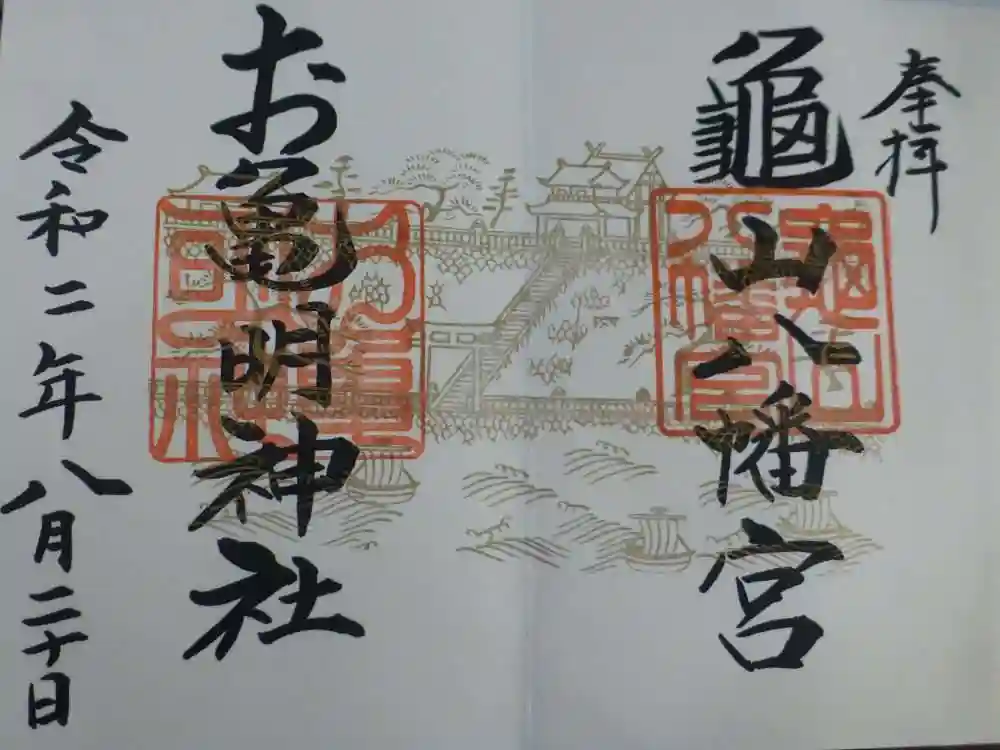 奉拝
龜山八幡宮
お亀明神社
令和二年八月二十日